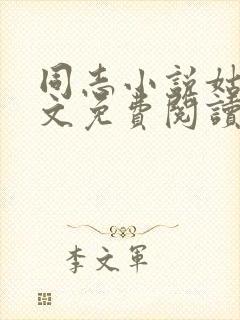 同志小说姑
文免費閱讀
李文軍